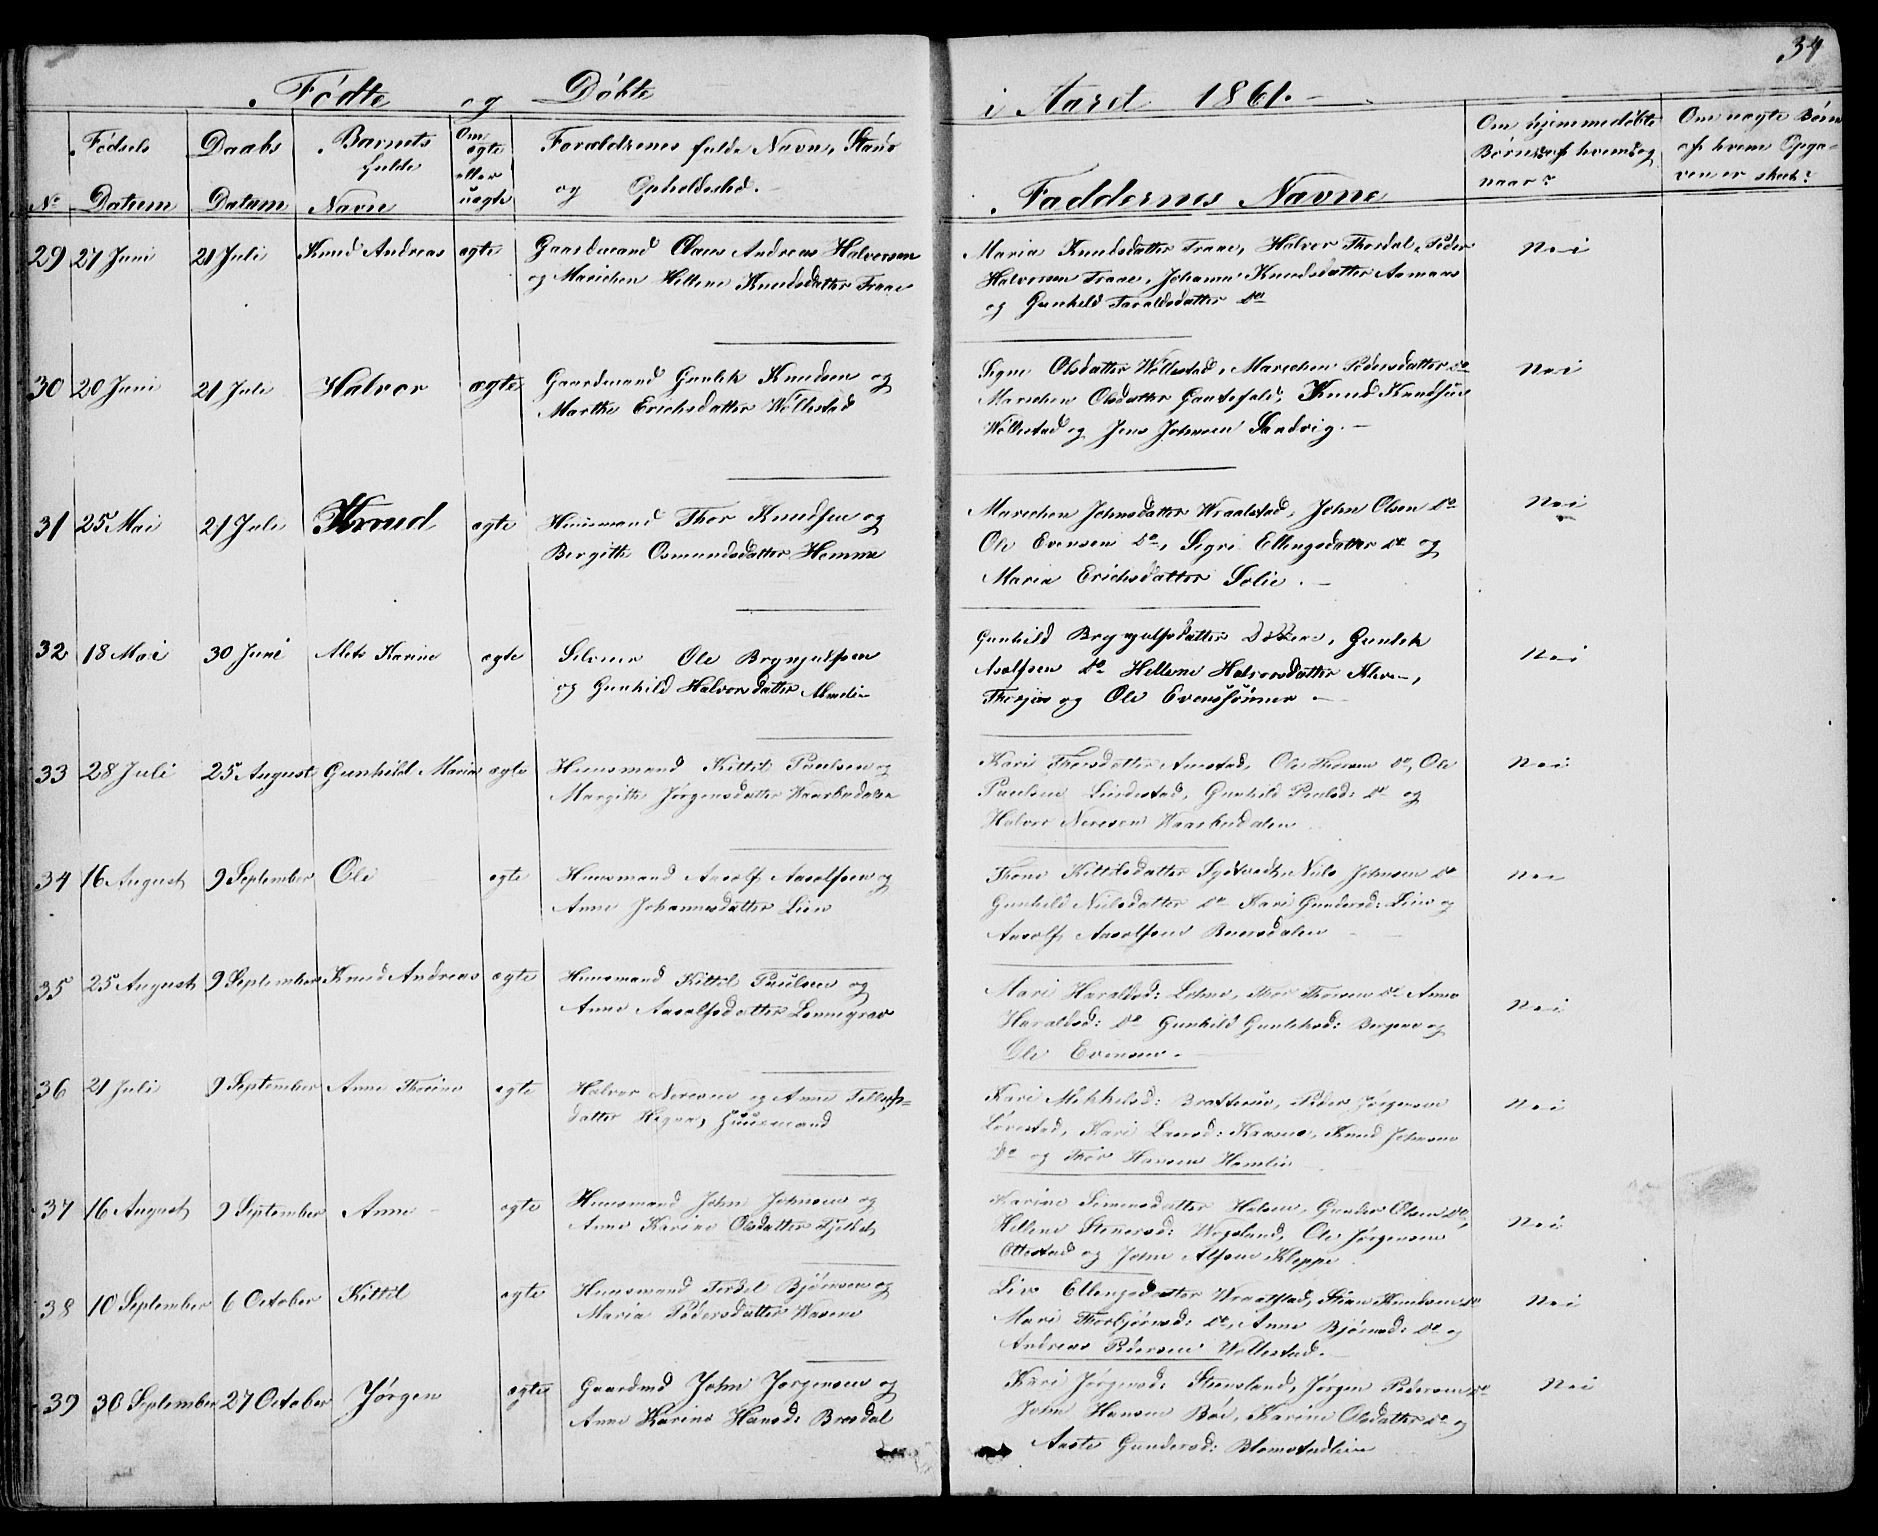 34
Fødte og Døbte
i Aaret 1861.
No
Fødsels Datum
Daabs Datum
Barnets fulde Navn
Om ægte eller uægte
Forældrenes fulde Navn, Stand
og Opholdssted.
Faddernes Navne
Om hjemmedøbte
Børns af hvem og
naar?
Om uægte Børn
af hvem Opga-
ven er skeet?
29 27 Juni 21 Juli Knud Andreas ægte Gaardmand Claus Andreas Halvorsen
og Marichen Hellene Knudsdatter Traae
Maria Knudsdatter Traae, Halvor Thorsdal, Peder
Halvorsen Traae, Johanne Knudsdatter Aamaas
og Gunhild Taraldsdatter do
Nei
30 20 Juni 21 Juli Halvor ægte Gaardmand Gunlek Knudsen og
Marthe Erichsdatter Wollestad
Signe Olsdatter Wollestad, Marichen Pedersdatter do
Marichen Olsdatter Gautefald, Knud Knudsen
Wollestad og Jens Johnsen Sandvig.
Nei
31 25 Mai 21 Juli Knud ægte Huusmand Thor Knudsen og
Bergitte Osmundsdatter Hemma
Marichen Johnsdatter Wraalstad, John Olsen do
Ole Evensen do, Sigri Ellingsdatter do og
Maria Erichsdatter Solie.
Nei
32 18 Mai 30 Juni Alete Karine ægte Selveier Ole Brynjulfsen
og Gunhild Halvorsdatter
Gunhild Brynjulfsdatter Gunlek
Aasolfsen do Hellene Halvorsdatter
og Ole Evenssønner
Nei
33 28 Juli 25 August Gunhild Maria ægte Huusmand Kittil Paulsen og
Margith Jørgensdatter Waasbudalen
Kari Thorsdatter Ole Thorsen do, Ole
Paulsen Lindestad, Gunhild Paulsd: do og
Halvor Neresen Waasbudalen
Nei
34 16 August 9 September Ole ægte Huusmand Aasolf Aasolfsen og
Anne Johannesdatter Lien
Thone Kittilsdatter Sydtvedt, Niels Johnsen do
Gunhild Nielsdatter do Kari Gundersd: Lien og
Aasolf Aasolfsen Buensdalen
Nei
35 25 August 9 September Knud Andreas ægte Huusmand Kittil Paulsen og
Anne Aasolfsdatter Lonnegrav
Mari Haraldsd: Thor Thorsen do Anne
Haraldsd: do Gunhild Gunleksd: Bergene og
Ole Evensen.
Nei
36 21 Juli 9 September Anne Thorine ægte Halvor Neresen og Anne Tellefs-
datter Hegna, Huusmand
Kari Mikkelsd: Peder Jørgensen
Løvestad, Kari Larsd: Kaasene, Knud Johnsen
do og Thor Hansen Hamlie
Nei
37 16 August 9 September Anne ægte Huusmand John Johnsen og
Anne Karine Olsdatter
Karine Simensdatter Halsen, Gunder Olsen do,
Hellene Stenersd: Wegsland, Ole Jørgensen
Ottestad og John Alfsen Kleppe
Nei
38 10 September 6 October Kittil ægte Huusmand Terkel Bjørnsen og
Maria Pedersdatter
Liv Ellingsdatter Wraalstad, Stian Knudsen do
Mari Thorbjørnsd: do, Anne Bjørnsd: do og
Andreas Pedersen Wollestad.
Nei
39 30 September 27 October Jørgen ægte Gaardmd John Jørgensen og
Anne Karine Hansd: Bredsdal
Kari Jørgensd: Steensland, Jørgen Pedersen do
John Hansen Bøe, Karine Olsdatter do og
Aaste Gundersd: Blomstadlien
Nei